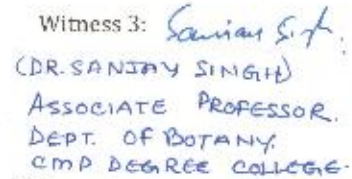 Witness 3: Sanjay Singh.
(DR. SANJAY SINGH)
ASSOCIATE PROFESSOR.
DEPT. OF BOTANY.
CMP DEGREE COLLEGE.